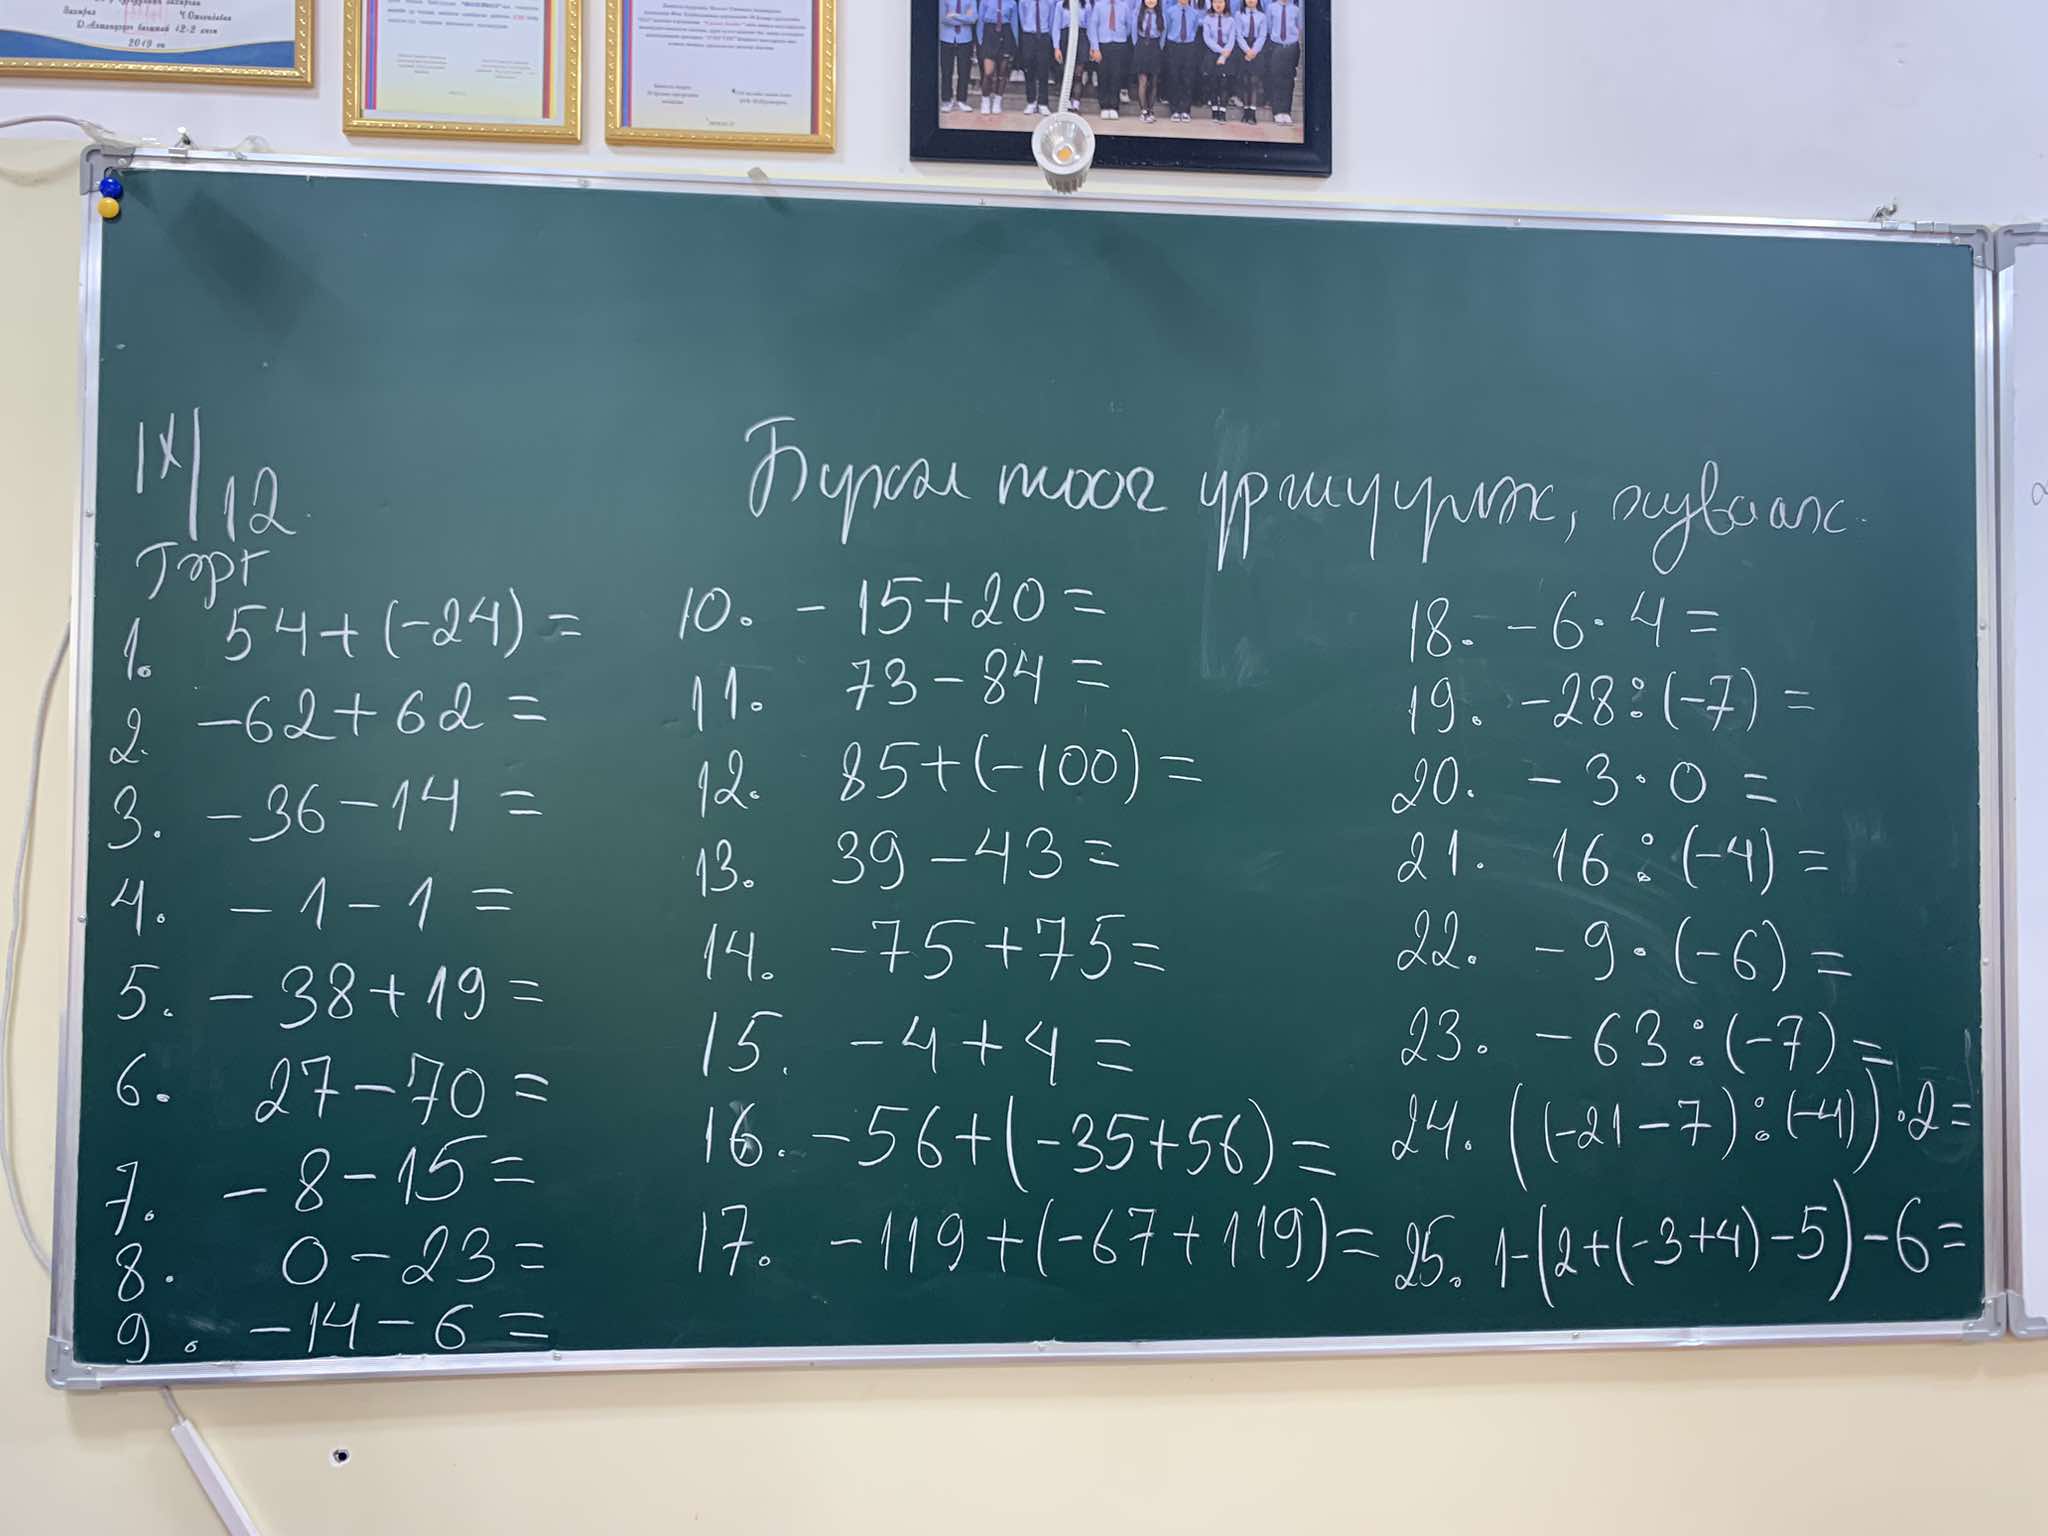 Ч.Отгондаваа
Д.Алтанцэцэг багштай 12-2 анги
2019 он
IX/12
Бүхэл тоог үржүүлж, хуваах.
Гэрт
1. 54+(-24)=
2. -62+62=
3. -36-14=
4. -1-1=
5. -38+19=
6. 27-70=
7. -8-15=
8. 0-23=
9. -14-6=
10. -15+20=
11. 73-84=
12. 85+(-100)=
13. 39-43=
14. -75+75=
15. -4+4=
16. -56+(-35+56)=
17. -119+(-67+119)=
18. -6·4=
19. -28:(-7)=
20. -3·0=
21. 16:(-4)=
22. -9·(-6)=
23. -63:(-7)=
24. ((-21-7):(-4))·2=
25. 1-(2+(-3+4)-5)-6=